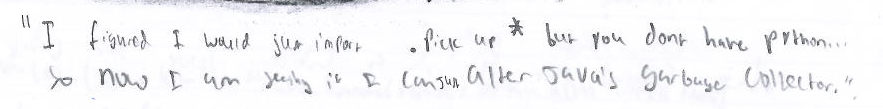 "I figured I would just import .Pick up * but you dont have python...
so now I am seeing if I can just alter Java's garbage collector."